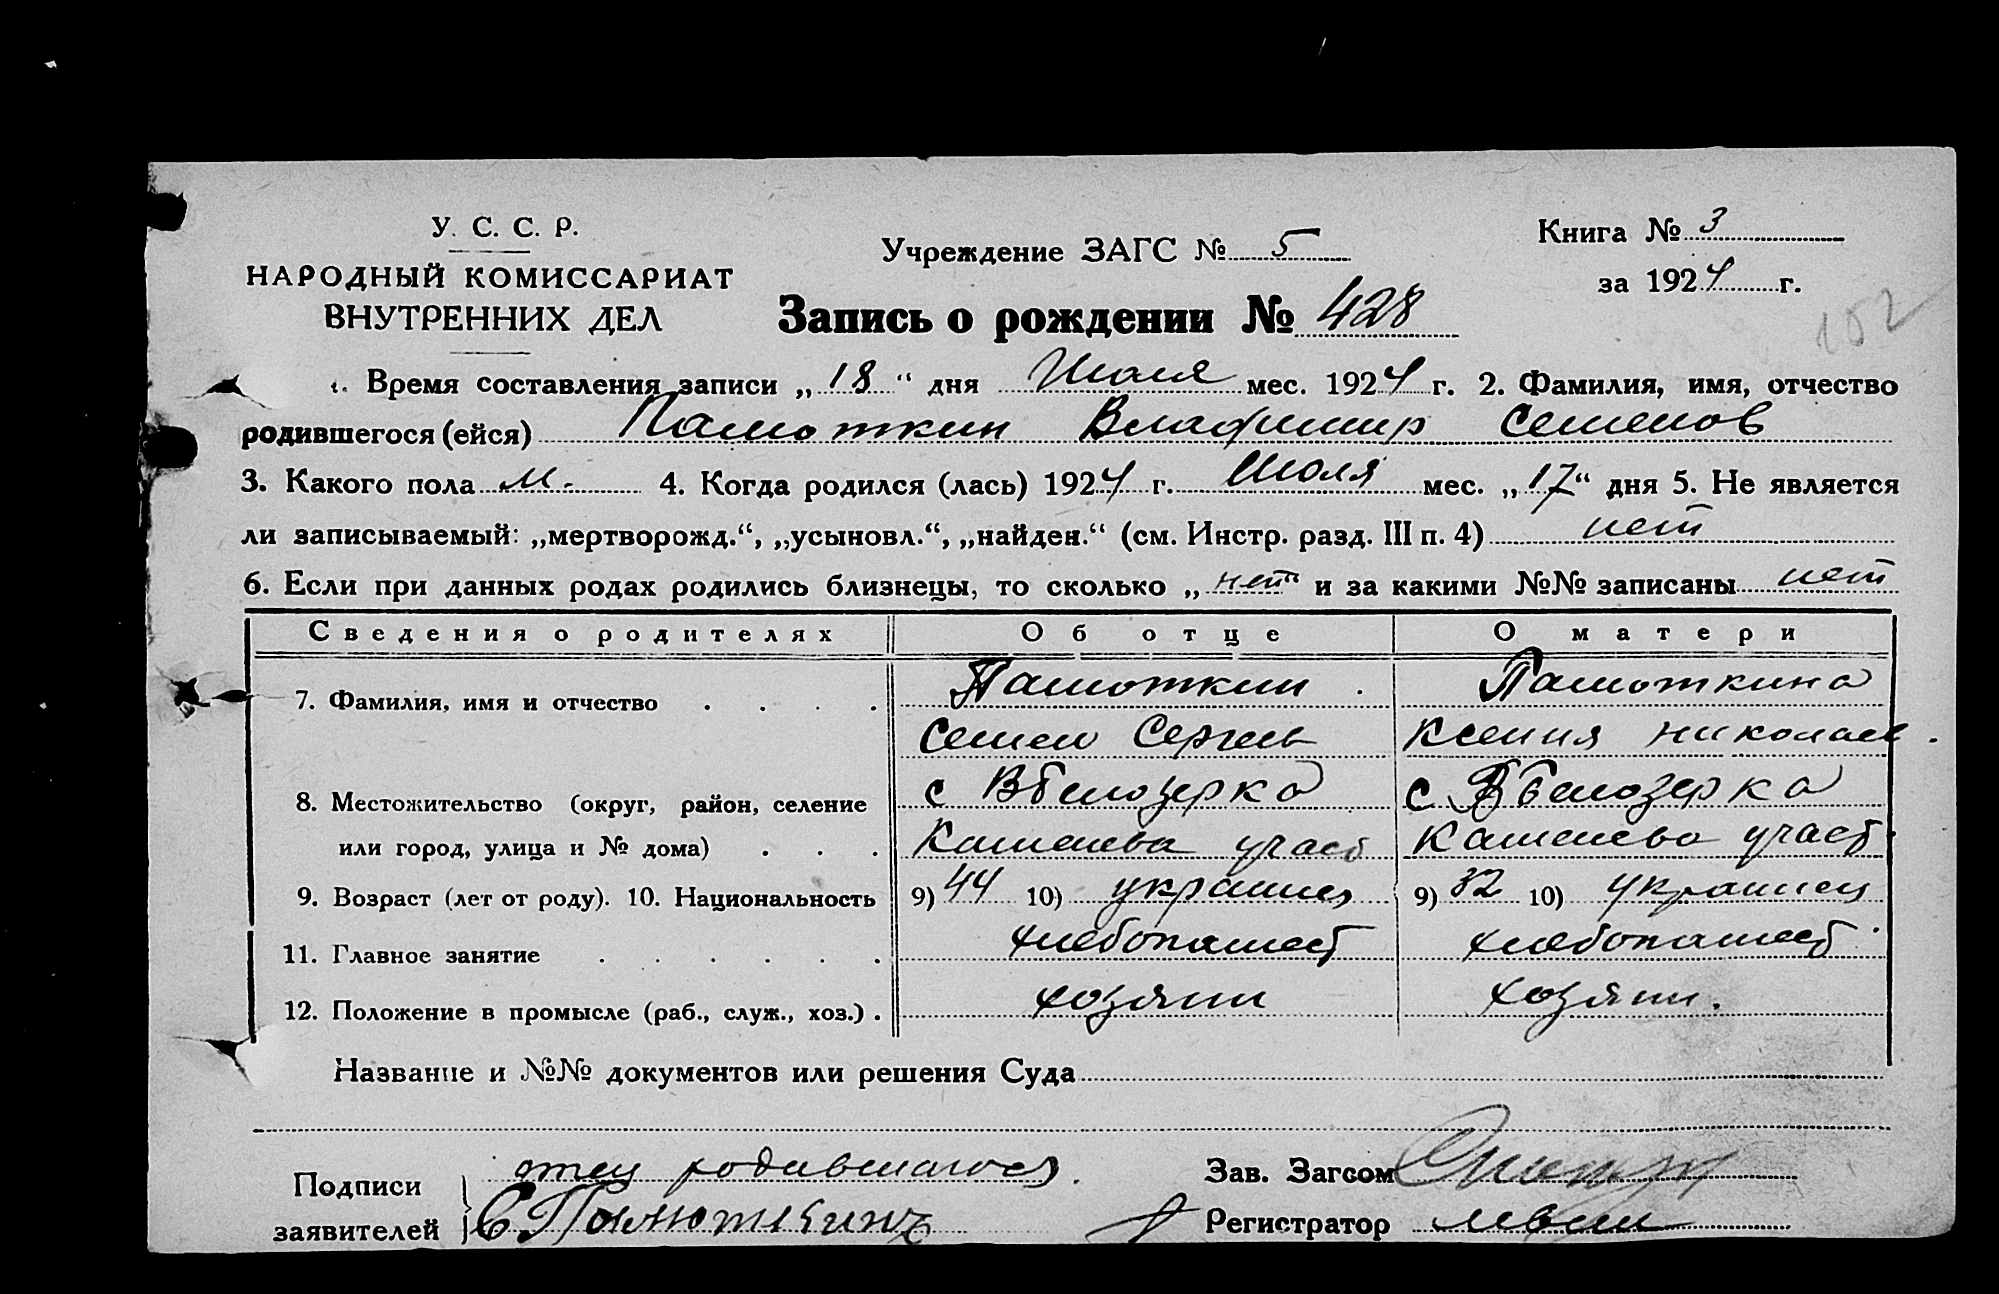 У. С. С. Р.
НАРОДНЫЙ КОМИССАРИАТ
ВНУТРЕННИХ ДЕЛ
Учреждение ЗАГС № 5
Книга № 3
за 1924 г.
Запись о рождении № 428
102
1. Время составления записи „18“ дня Июля мес. 1924 г. 2. Фамилия, имя, отчество
родившегося (ейся) Памоткин Владимир Семенов
3. Какого пола м. 4. Когда родился (лась) 1924 г. Июля мес. „17“ дня 5. Не является
ли записываемый: „мертворожд.“, „усыновл.“, „найден.“ (см. Инстр. разд. III п. 4) нет
6. Если при данных родах родились близнецы, то сколько „нет“ и за какими №№ записаны нет
Сведения о родителях Об отце О матери
7. Фамилия, имя и отчество . . . . Памоткин . Памоткина
Семен Сергеев Ксения Николаев.
8. Местожительство (округ, район, селение с Вбелозерка с Вбелозерка
или город, улица и № дома) . . . Каменева участ Каменева участ.
9. Возраст (лет от роду). 10. Национальность 9) 44 10) украинец 9) 32 10) украинец
11. Главное занятие . . . . . . хлебопашест хлебопашест.
12. Положение в промысле (раб., служ., хоз.) . хозяин хозяин.
Название и №№ документов или решения Суда
Подписи
заявителей
отец родившагося.
С. Памюткинъ
Зав. Загсом
Регистратор